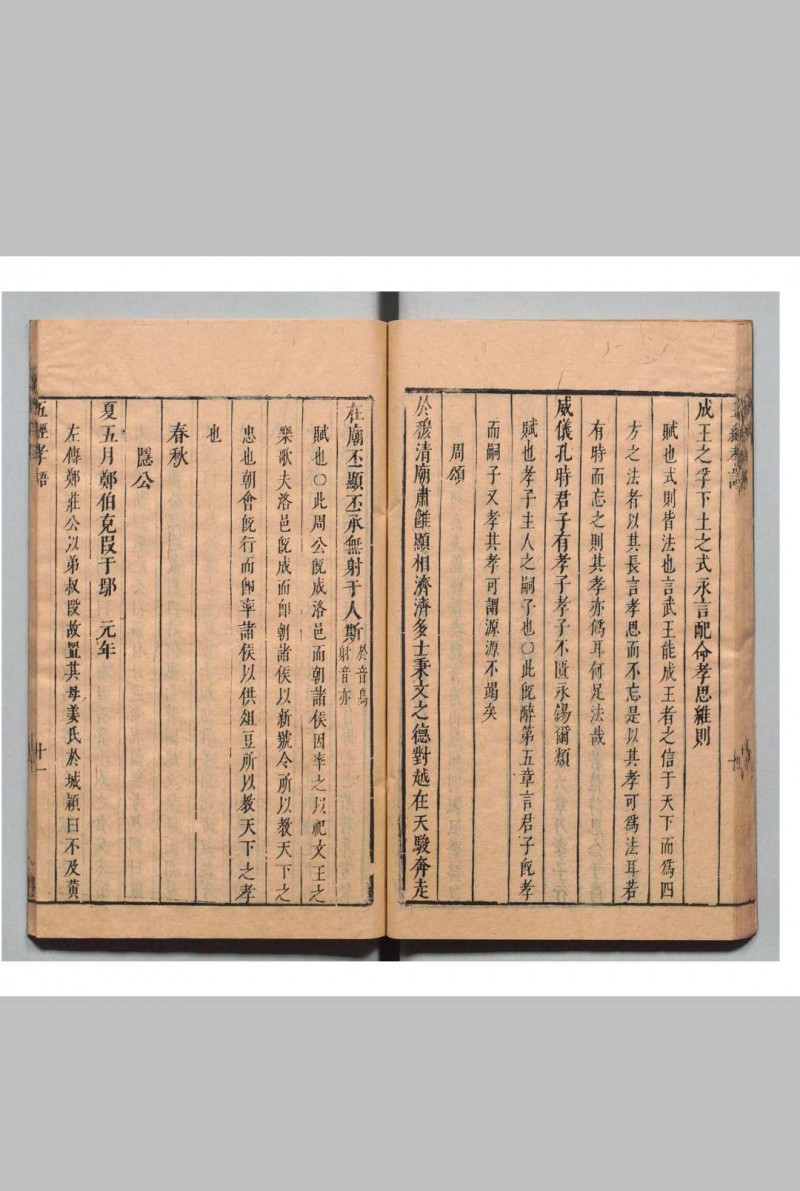 五經孝語
成王之孚下土之式永言配命孝思維則
賦也式則皆法也言武王能成王者之信于天下而爲四
方之法者以其長言孝思而不忘是以其孝可爲法耳若
有時而忘之則其孝亦僞耳何足法哉
威儀孔時君子有孝子孝子不匱永錫爾類
賦也孝子主人之嗣子也○此旣醉第五章言君子旣孝
而嗣子又孝其孝可謂源源不竭矣
周頌
於穆清廟肅雝顯相濟濟多士秉文之德對越在天駿奔走
在廟丕顯丕承無射于人斯 於音烏
射音亦
賦也○此周公旣成洛邑而朝諸侯因率之以祀文王之
樂歌夫洛邑旣成而卽朝諸侯以新號令所以教天下之
忠也朝會旣行而卽率諸侯以供俎豆所以教天下之孝
也
春秋
隱公
夏五月鄭伯克段于鄢 元年
左傳鄭莊公以弟叔段故置其母姜氏於城潁曰不及黃
五經孝語
十一